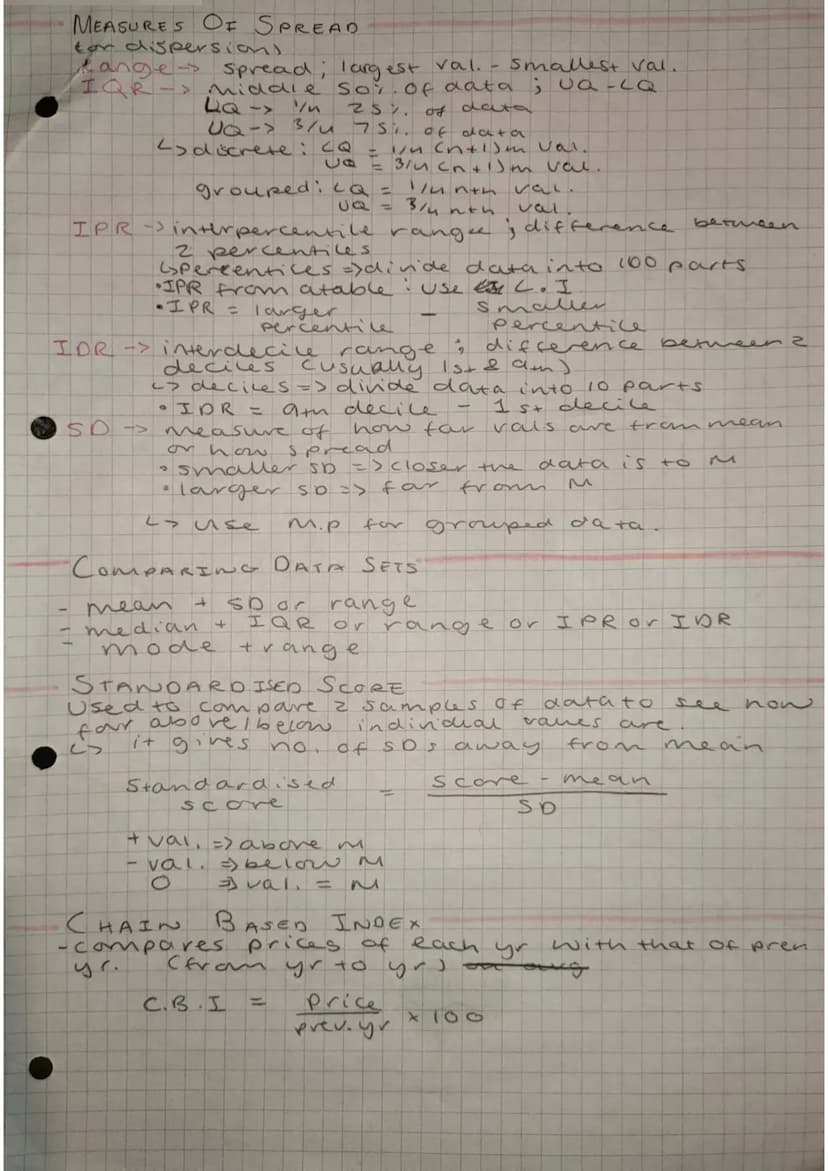 MEASURES OF SPREAD
(or dispersion)
Range -> spread; largest val. - smallest val.
IQR -> middle 50% of data ; UQ - LQ
LQ -> 1/4 25% of data
UQ -> 3/4 75% of data
↳ discrete: LQ = 1/4 (n+1)th val.
UQ = 3/4 (n+1)th val.
grouped: LQ = 1/4 nth val.
UQ = 3/4 nth val.
IPR -> interpercentile range ; difference between
2 percentiles
↳ percentiles => divide data into 100 parts
• IPR from a table : use L.I
• IPR = larger - smaller
percentile percentile
IDR -> interdecile range ; difference between 2
deciles (usually 1st & 9th)
↳ deciles => divide data into 10 parts
• IDR = 9th decile - 1st decile
SD -> measure of how far vals are from mean
or how spread
• smaller SD => closer the data is to M
• larger SD => far from M
↳ use M.P for grouped data.
COMPARING DATA SETS
- mean + SD or range
- median + IQR or range or IPR or IDR
- mode + range
STANDARDISED SCORE
Used to compare 2 samples of data to see how
far above/below individual values are
↳ it gives no. of SDs away from mean
Standardised = score - mean
score SD
+ val. => above M
- val. => below M
0 => val. = M
CHAIN BASED INDEX
- compares prices of each yr with that of prev
yr. (from yr to yr)
C.B.I = price × 100
prev. yr